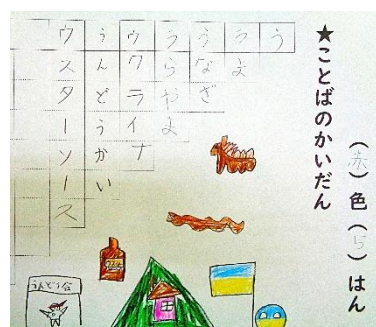 （赤）色（5）はん
★ことばのかいだん
う
うま
うなぎ
うらやま
ウクライナ
うんどうかい
ウスターソース
うんどう会